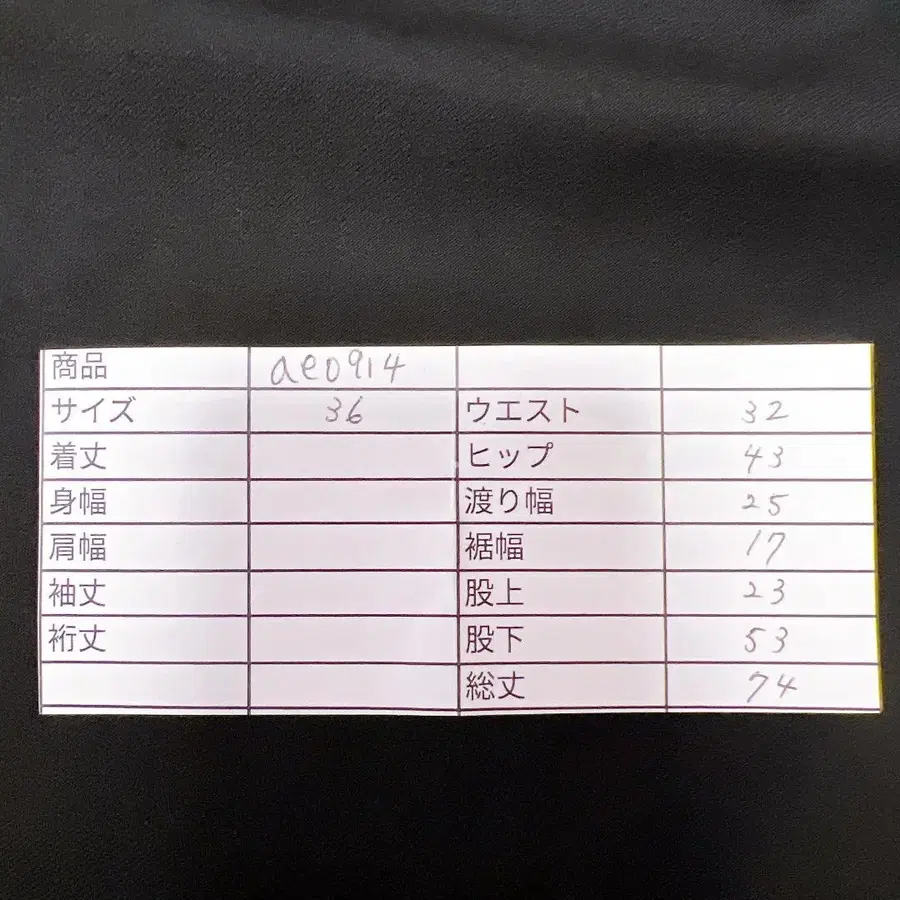 商品 ae0914
サイズ 36 ウエスト 32
着丈 ヒップ 43
身幅 渡り幅 25
肩幅 裾幅 17
袖丈 股上 23
裄丈 股下 53
総丈 74